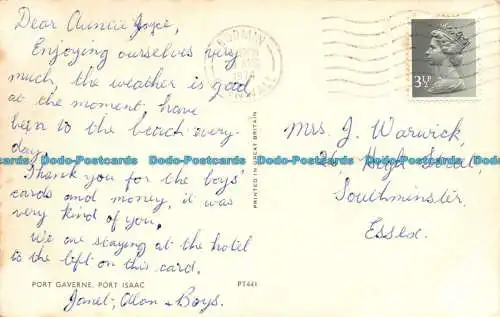 Dear Auntie Joyce,
Enjoying ourselves very
much, the weather is good
at the moment have
been to the beach every-
day.
Thank you for the boys'
cards and money, it was
very kind of you.
We are staying at the hotel
to the left on this card.
PORT GAVERNE, PORT ISAAC
PT441
Janet, Allan & Boys.
BODMIN
1974
CORNWALL
3½P
PRINTED IN GREAT BRITAIN
Mrs. J. Warwick,
26, High Street,
Southminster.
Essex.
Dodo-Postcards Dodo-Postcards Dodo-Postcards Dodo-Postcards Dodo-Postcards